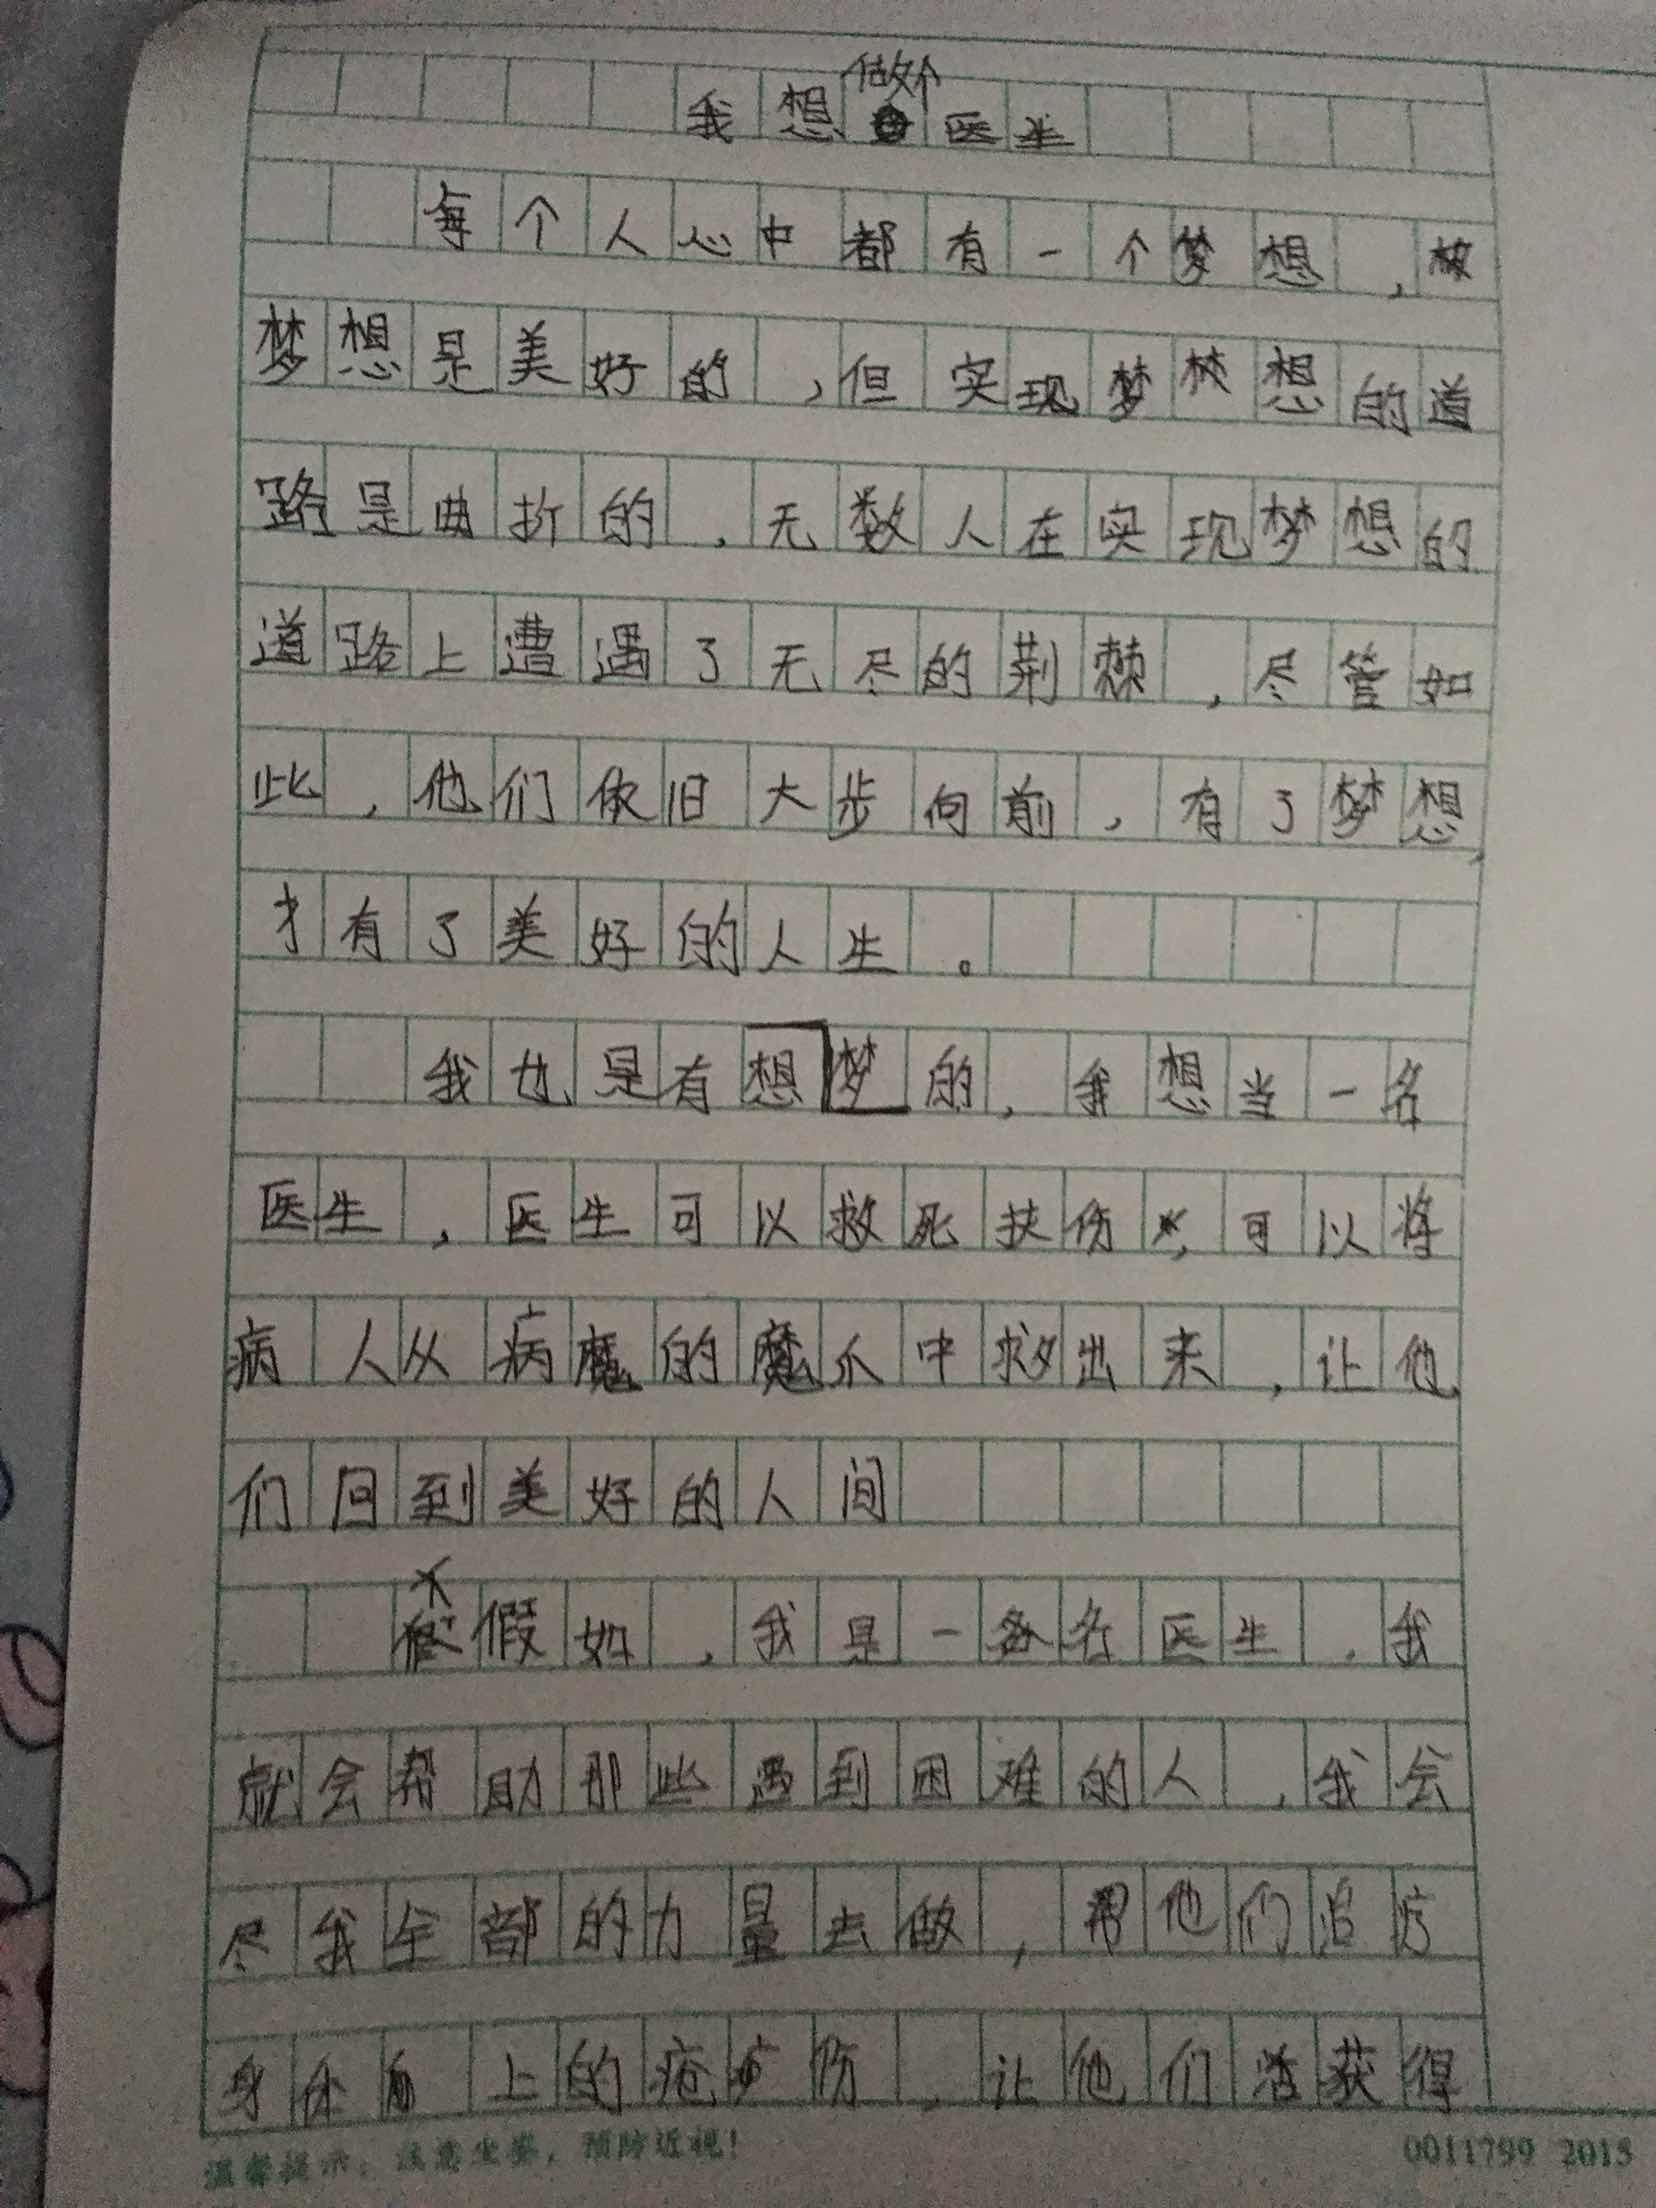 我想做个医生
每个人心中都有一个梦想,
梦想是美好的,但实现梦想的道
路是曲折的,无数人在实现梦想的
道路上遭遇了无尽的荆棘,尽管如
此,他们依旧大步向前,有了梦想,
才有了美好的人生。
我也是有想梦的,我想当一名
医生,医生可以救死扶伤,可以将
病人从病魔的魔爪中救出来,让他
们回到美好的人间
假如,我是一名医生,我
就会帮助那些遇到困难的人,我会
尽我全部的力量去做,帮他们治疗
身体上的疮伤,让他们获得
温馨提示:注意坐姿,预防近视!
0011799 2015